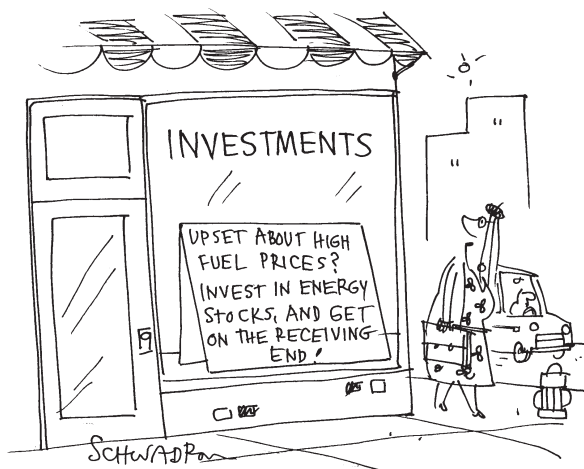 INVESTMENTS
UPSET ABOUT HIGH
FUEL PRICES?
INVEST IN ENERGY
STOCKS, AND GET
ON THE RECEIVING
END!
SCHWADRON